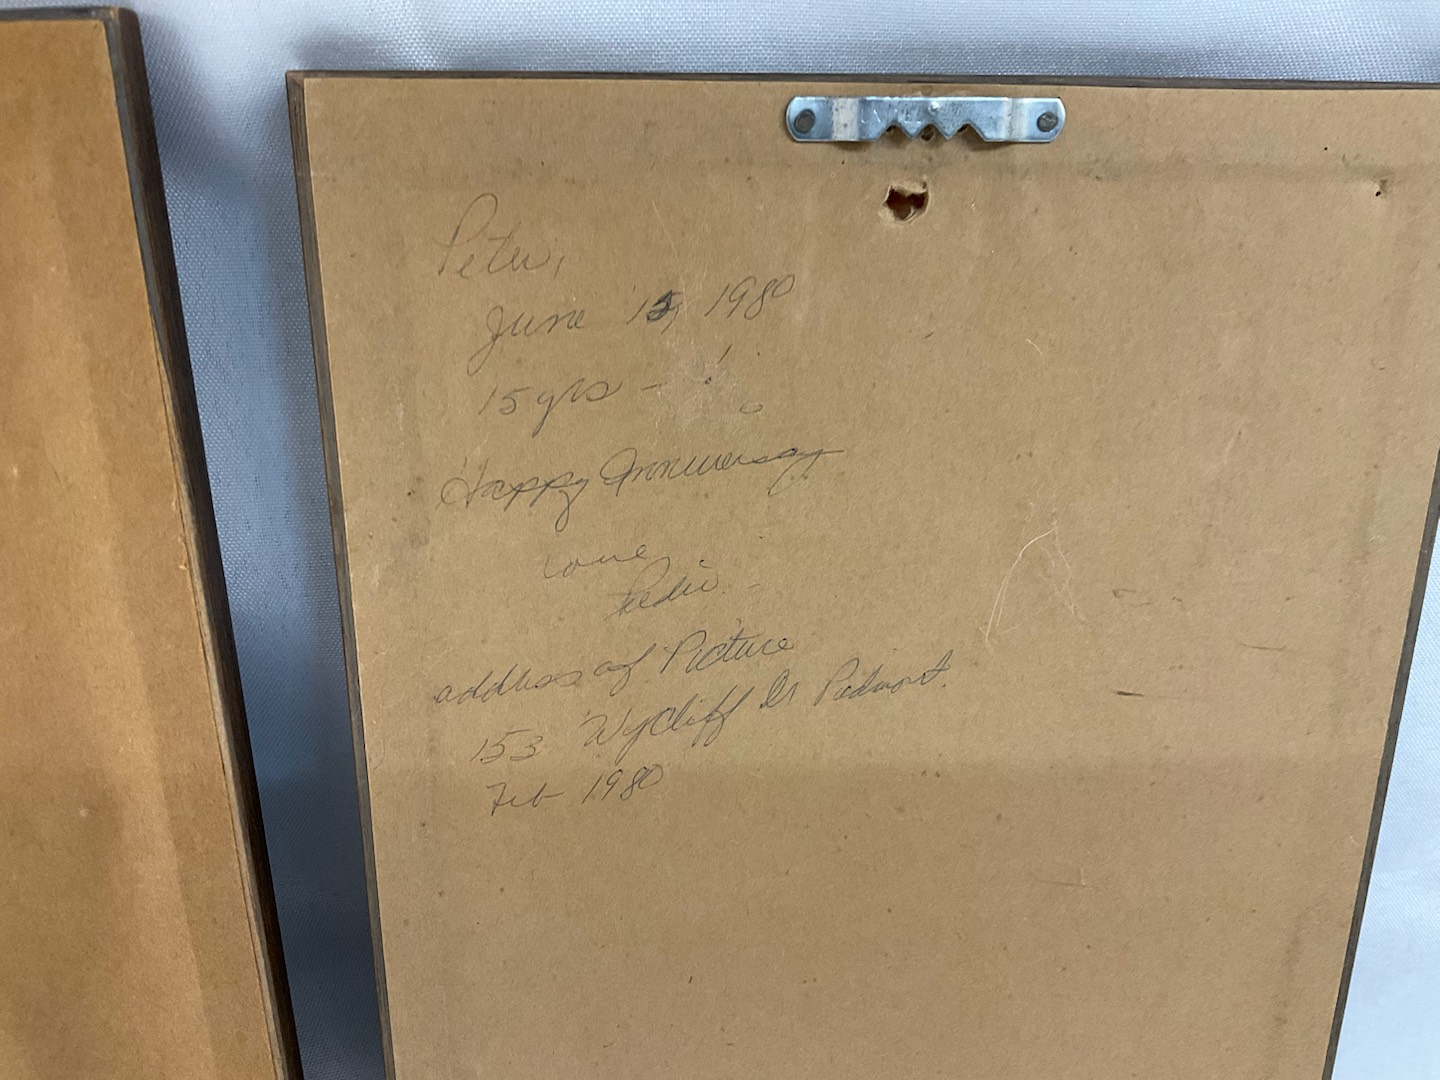 Peter,
June 15, 1980
15 yrs -
Happy Anniversary
Love,
address of Picture
153 Wycliff Dr Piedmont.
Feb 1980